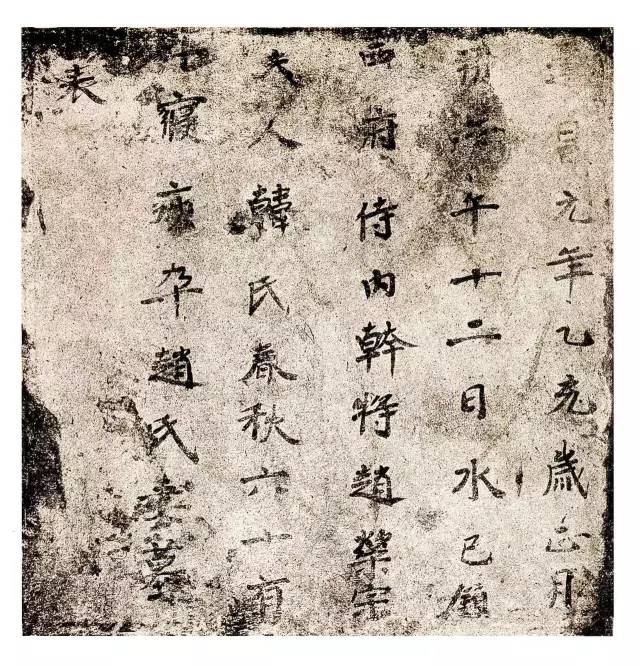 昌元年乙亥歲正月
朔戊午十二日水巳鎮
西府侍内幹將趙榮宗
夫人韓氏春秋六十有
七寢疾卒趙氏妻墓
表